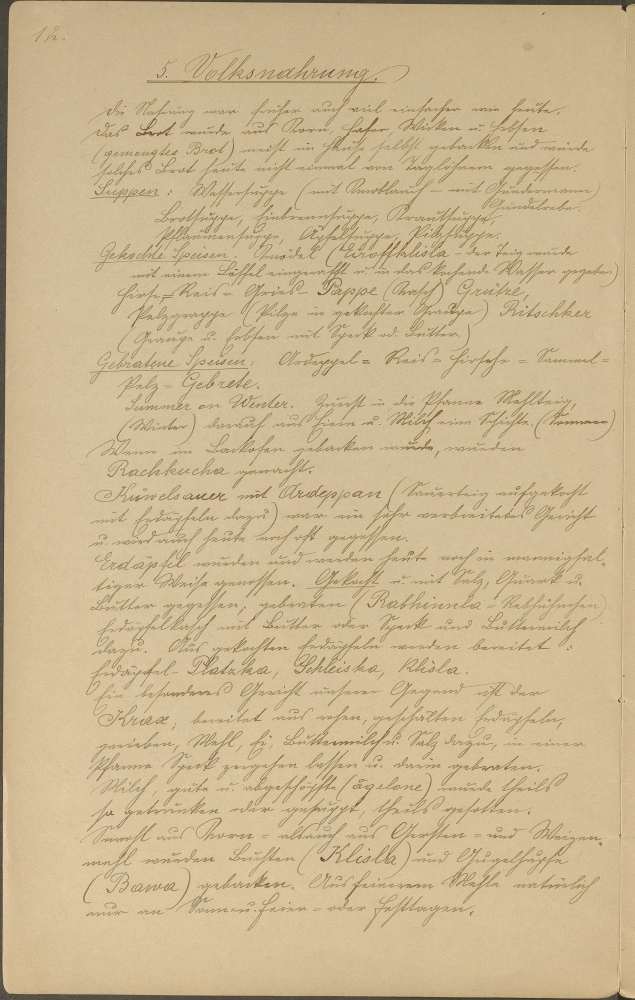 12.
5. Volksnahrung.
Die Nahrung war früher auch viel einfacher wie heute.
Das Brot wurde aus Korn, Hafer, Wicken u. Erbsen
(gemengtes Brot) meist im Hause selbst gebacken und würde
solches Brot heute nicht einmal von Taglöhnern gegessen.
Suppen: Wassersuppe (mit Knoblauch - mit Gundermann)
Gundelrebe.
Brotsuppe, Einbrennsuppe, Krautsuppe,
Pflaumensuppe, Äpfelsuppe, Pilzsuppe.
Gekochte Speisen: Knödel ( - der Teig wurde
mit einem Löffel eingerafft u. in das kochende Wasser gegeben)
Hirse = Reis = Gries = Pappe (Kasch) Grütze,
Pelzgrappe (Pilze in gekochter Graupe) Ritschker
(Graupe u. Erbsen mit Speck od. Butter)
Gebratene Speisen: Ardeppel = Reis = Hirsche = Sammel =
Pelz = Gebrete.
Summer on Wenter. Zuerst in die Pfanne Mehlteig,
(Winter) darauf aus Eiern u. Milch eine Schichte. (Sommer)
Wenn im Backofen gebacken wurde, wurden
Rachkucha gemacht.
Kuwelsauer mit Ardeppan (Sauerteig aufgekocht
mit Erdäpfeln dazu) war ein sehr verbreitetes Gericht
u. wird auch heute noch oft gegessen.
Erdäpfel wurden und werden heute noch in mannigfal-
tiger Weise genossen. Gekocht u. mit Salz, Quark u.
Butter gegessen, gebraten (Rabhinnla = Rebhühnchen)
Erdäpfelkasch mit Butter oder Speck und Buttermilch
dazu. Aus gekochten Erdäpfeln werden bereitet:
Erdäpfel - Platzka, Schleiska, Klisla.
Ein besonderes Gericht unserer Gegend ist der
bereitet aus rohen, geschälten Erdäpfeln,
gerieben, Mehl, Ei, Buttermilch u. Salz dazu, in einer
Pfanne Speck zergehen lassen u. darin gebraten.
Milch, gute u. abgeschöpfte (ägelone) wurde theils
so getrunken oder gesuppt, theils gesotten.
Sowohl aus Korn = als auch aus Gersten = und Weizen-
mehl wurden Buchten (Klisla) und Gugelhupfe
(Bawa) gebacken. Aus feinerem Mehle natürlich
nur an Sonn u. Feier = oder Festtagen.